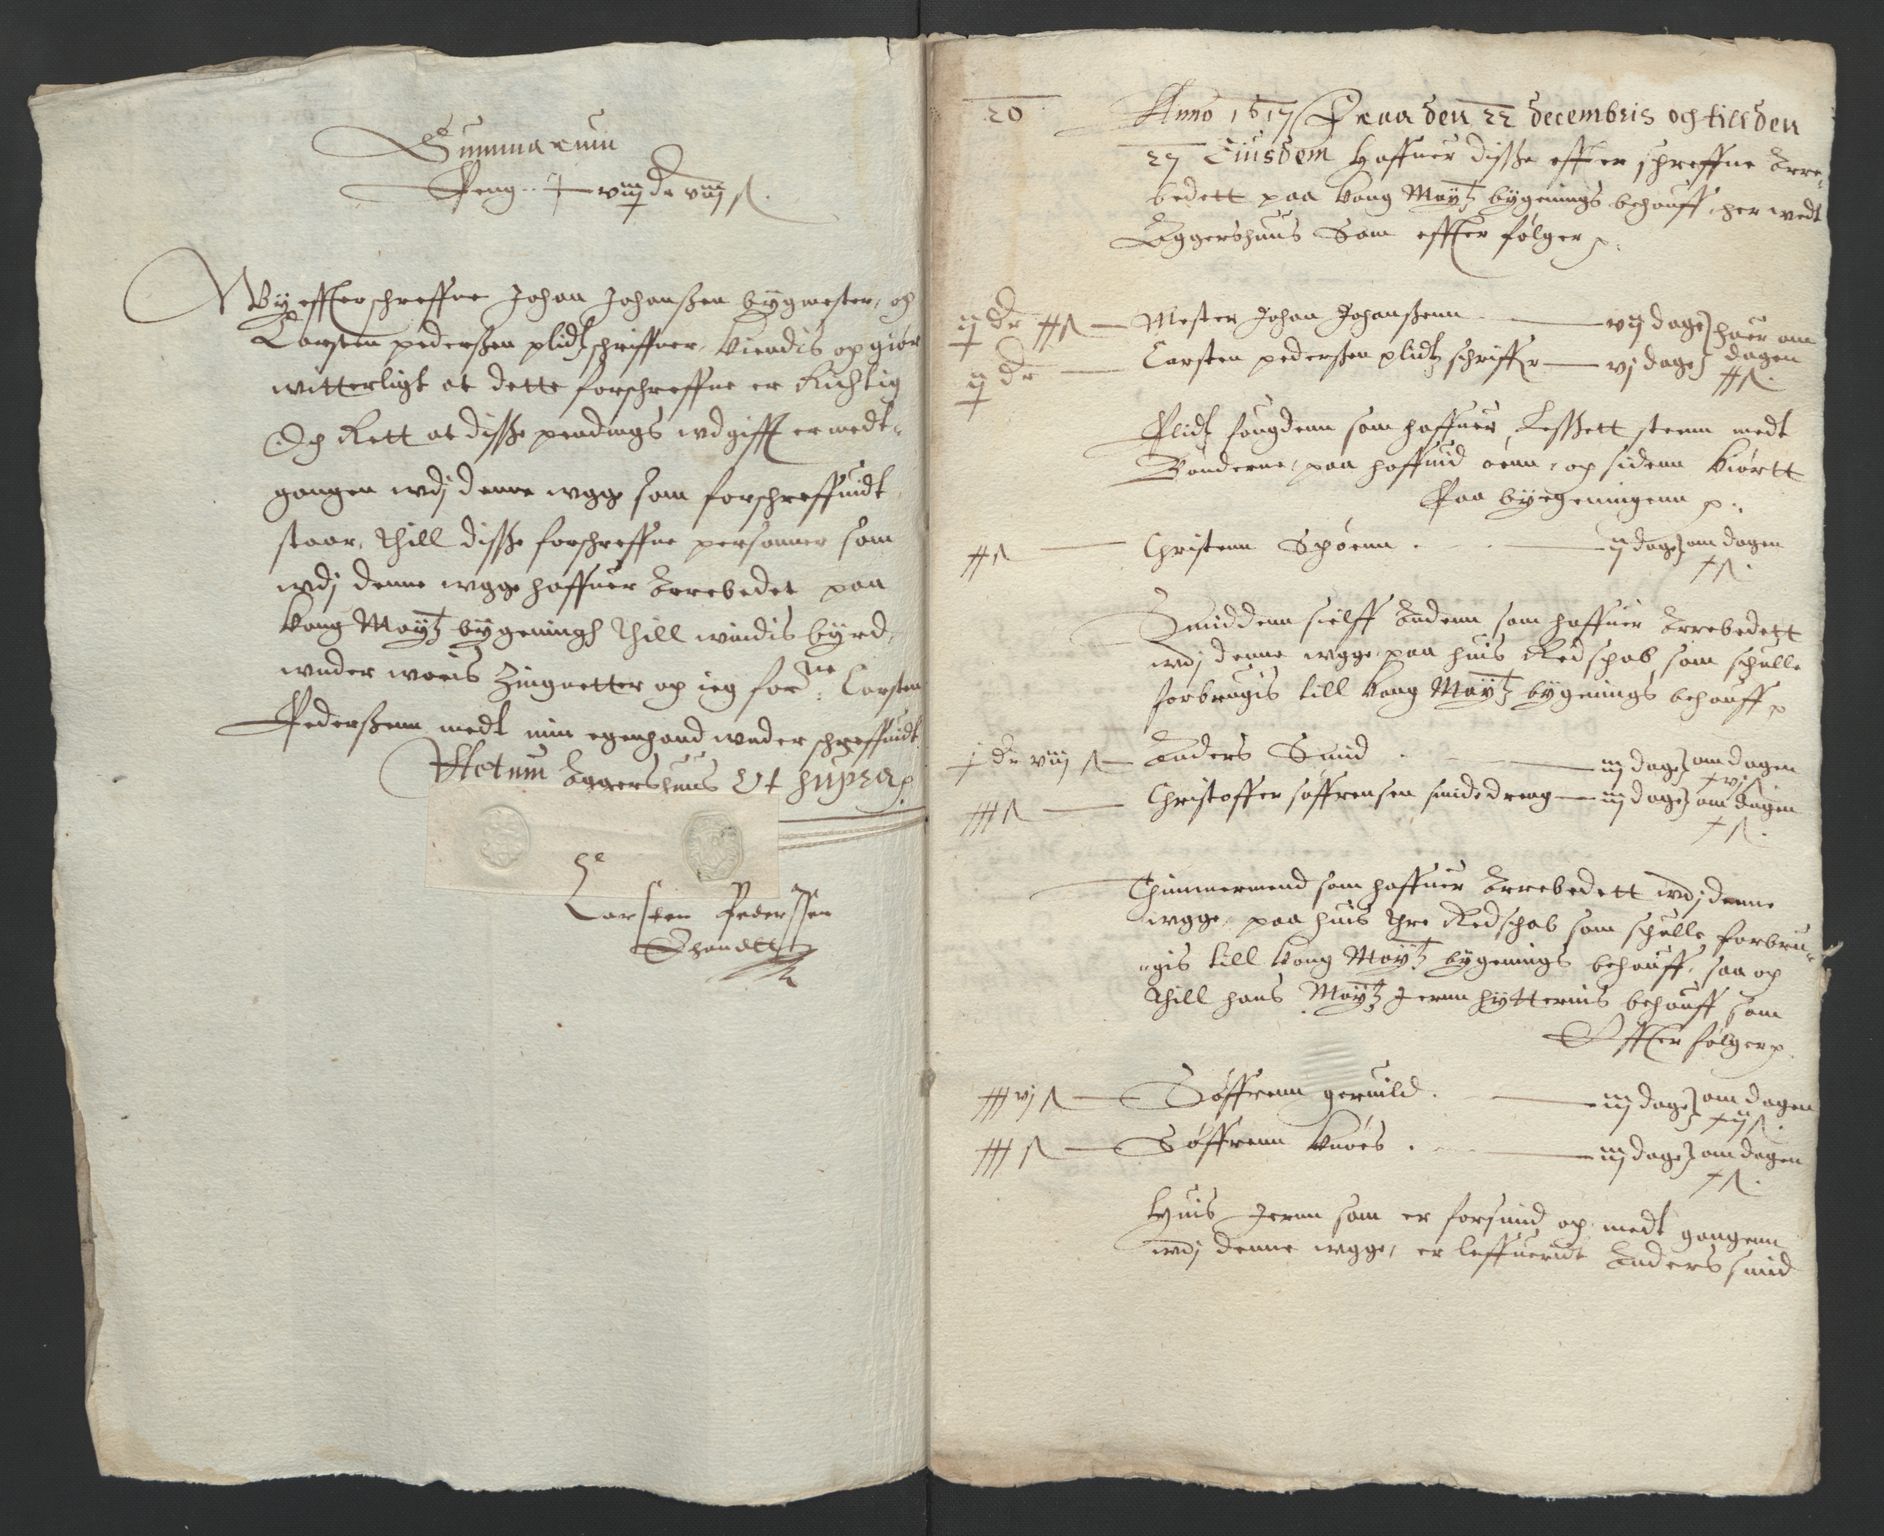 Summarum
Peng viij dr viij s.
Wy effterschreffne Johan Johanßen bygmester, och
Carsten pederßen plidtschriffuer, Kiendis och giør
witterligt at dette forschreffne er Richtig
Och Rett at disße pendings wdgifft er medt
gangen wdj denne wgge som forschreffuidt
staar, Thill disße forschreffne personner som
wdj denne wgge haffuer Arrebedet paa
Kong Maytz bygening Thill windis byrd,
wnder woris Zingnetter och ieg for:ne Carsten
Pederßenn medt min egenhand wnder schreffuidt
Actum Aggershuus Ut supra
Carsten Pederssen
Ehandtt
20
Anno 1617 Fraa den 22 decembris och till den
27 Eiusdem Haffuer disße effterschreffne Arre-
bedett paa Kong Maytz bygenings behouff her wedt
Aggershuus Som effter følger
ij dr ++ s Mester Johan Johanßenn vij dage huer om
ij dr Carsten pederßen plidtz schriffr vj dage dagen
++ s.
Plidtz fougdenn som haffuer Lesßett steenn medt
Bønderne, paa hoffuid øenn, och sidenn Kiørtt
Paa byegeningenn
++ s Christenn Spøenn ij dage om dagen
+ s.
Smiddenn sielff Andenn som haffuer Arrebedett
wdj denne wgge, paa huis Redschab som schulle
forbrugis till Kong Maytz bygenings behouff
j dr viij s Anders Smid iiij dage om dagen
+vj s
+++ s Christoffer søffrensen smidedreng iij dage om dagen
+ s.
Thimmermend som haffuer Arrebedett wdj denne
wgge, paa huis Thre Redschab som schulle forbru-
gis till Kong Maytz bygenings behouff, saa och
Thill hans Maytz Jernn hytternis behouff som
Effter følger
+++ vj s Søffrenn geruild iij dage om dagen
+ij s.
+++ s Søffrenn Knoes iij dage om dagen
+ s.
Huis Jernn som er forsmid och medt gangenn
wdj denne wgge, er leffueridt Anders smid